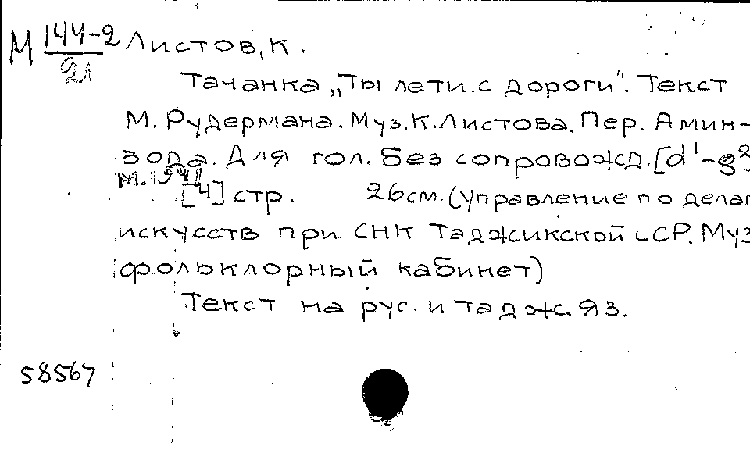 М 144-2/21 Листов, К.
Тачанка „Ты лети с дороги". Текст
М. Рудермана. Муз. К. Листова. Пер. Амин-
зода. Для гол. без сопровожд. [d¹-g²
М. 1941
[4] стр. 26 см. (Управление по делам
искусств при СНК Таджикской ССР. Муз
фольклорный кабинет)
Текст на рус. и тадж. яз.
58567